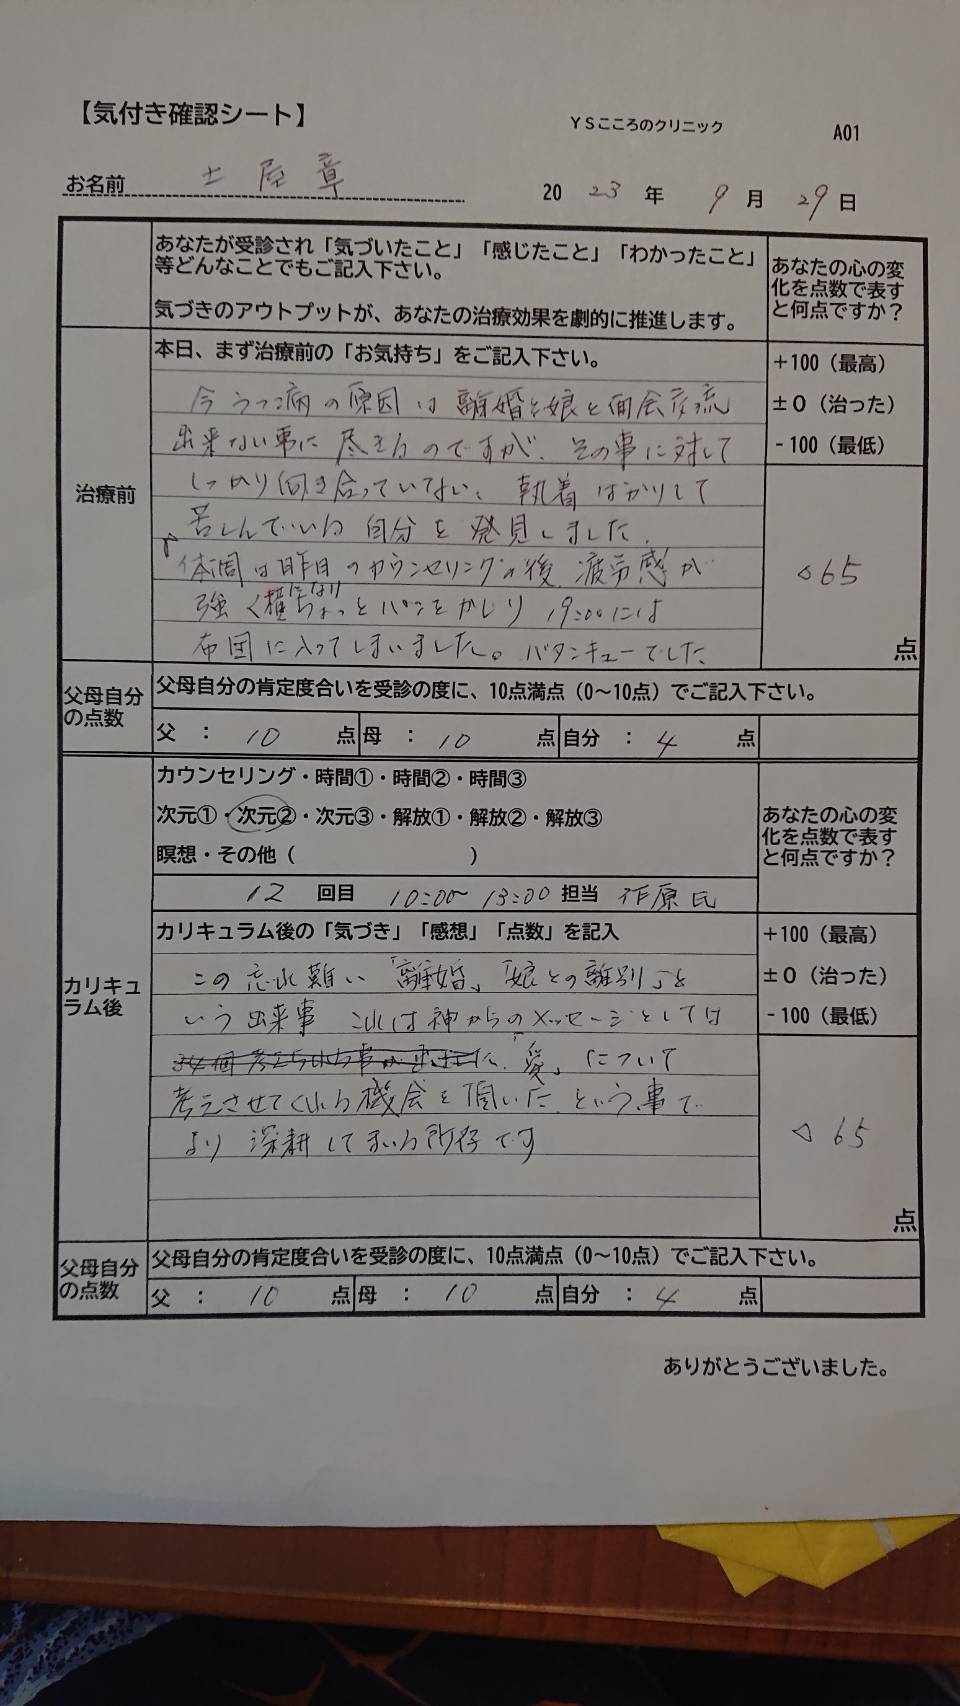 【気付き確認シート】
YSこころのクリニック
A01
お名前 土屋章
2023年9月29日
あなたが受診され「気づいたこと」「感じたこと」「わかったこと」
等どんなことでもご記入下さい。
気づきのアウトプットが、あなたの治療効果を劇的に推進します。
あなたの心の変
化を点数で表す
と何点ですか?
治療前
本日、まず治療前の「お気持ち」をご記入下さい。
今うつ病の原因は離婚と娘と面会交流
出来ない事に尽きるのですが、その事に対して
しっかり向き合っていない、執着ばかりして
苦しんでいる自分を発見しました。
体調は昨日のカウンセリングの後、疲労感が
強く横になり
ちょっとパンをかじり 19:00には
布団に入ってしまいました。バタンキューでした
+100(最高)
±0(治った)
-100(最低)
△65
点
父母自分
の点数
父母自分の肯定度合いを受診の度に、10点満点(0~10点)でご記入下さい。
父 : 10 点 母 : 10 点 自分 : 4 点
カリキュ
ラム後
カウンセリング・時間①・時間②・時間③
次元①・次元②・次元③・解放①・解放②・解放③
瞑想・その他( )
12 回目 10:00~13:00 担当 作原氏
あなたの心の変
化を点数で表す
と何点ですか?
カリキュラム後の「気づき」「感想」「点数」を記入
この忘れ難い「離婚」「娘との離別」と
いう出来事 これは神からのメッセージとしては
「愛」について
考えさせてくれる機会を頂いた という事で
より深耕してまいる所存です
+100(最高)
±0(治った)
-100(最低)
△65
点
父母自分
の点数
父母自分の肯定度合いを受診の度に、10点満点(0~10点)でご記入下さい。
父 : 10 点 母 : 10 点 自分 : 4 点
ありがとうございました。